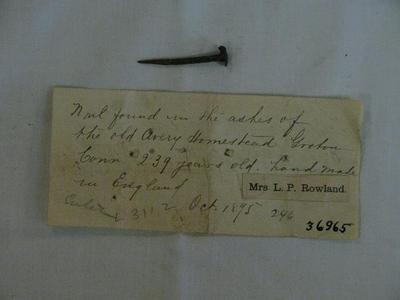 Nail found in the ashes of
the old Avery Homestead Groton
Conn 239 years old. hand made
in England
Mrs L. P. Rowland.
311 Oct. 1895 246
36965